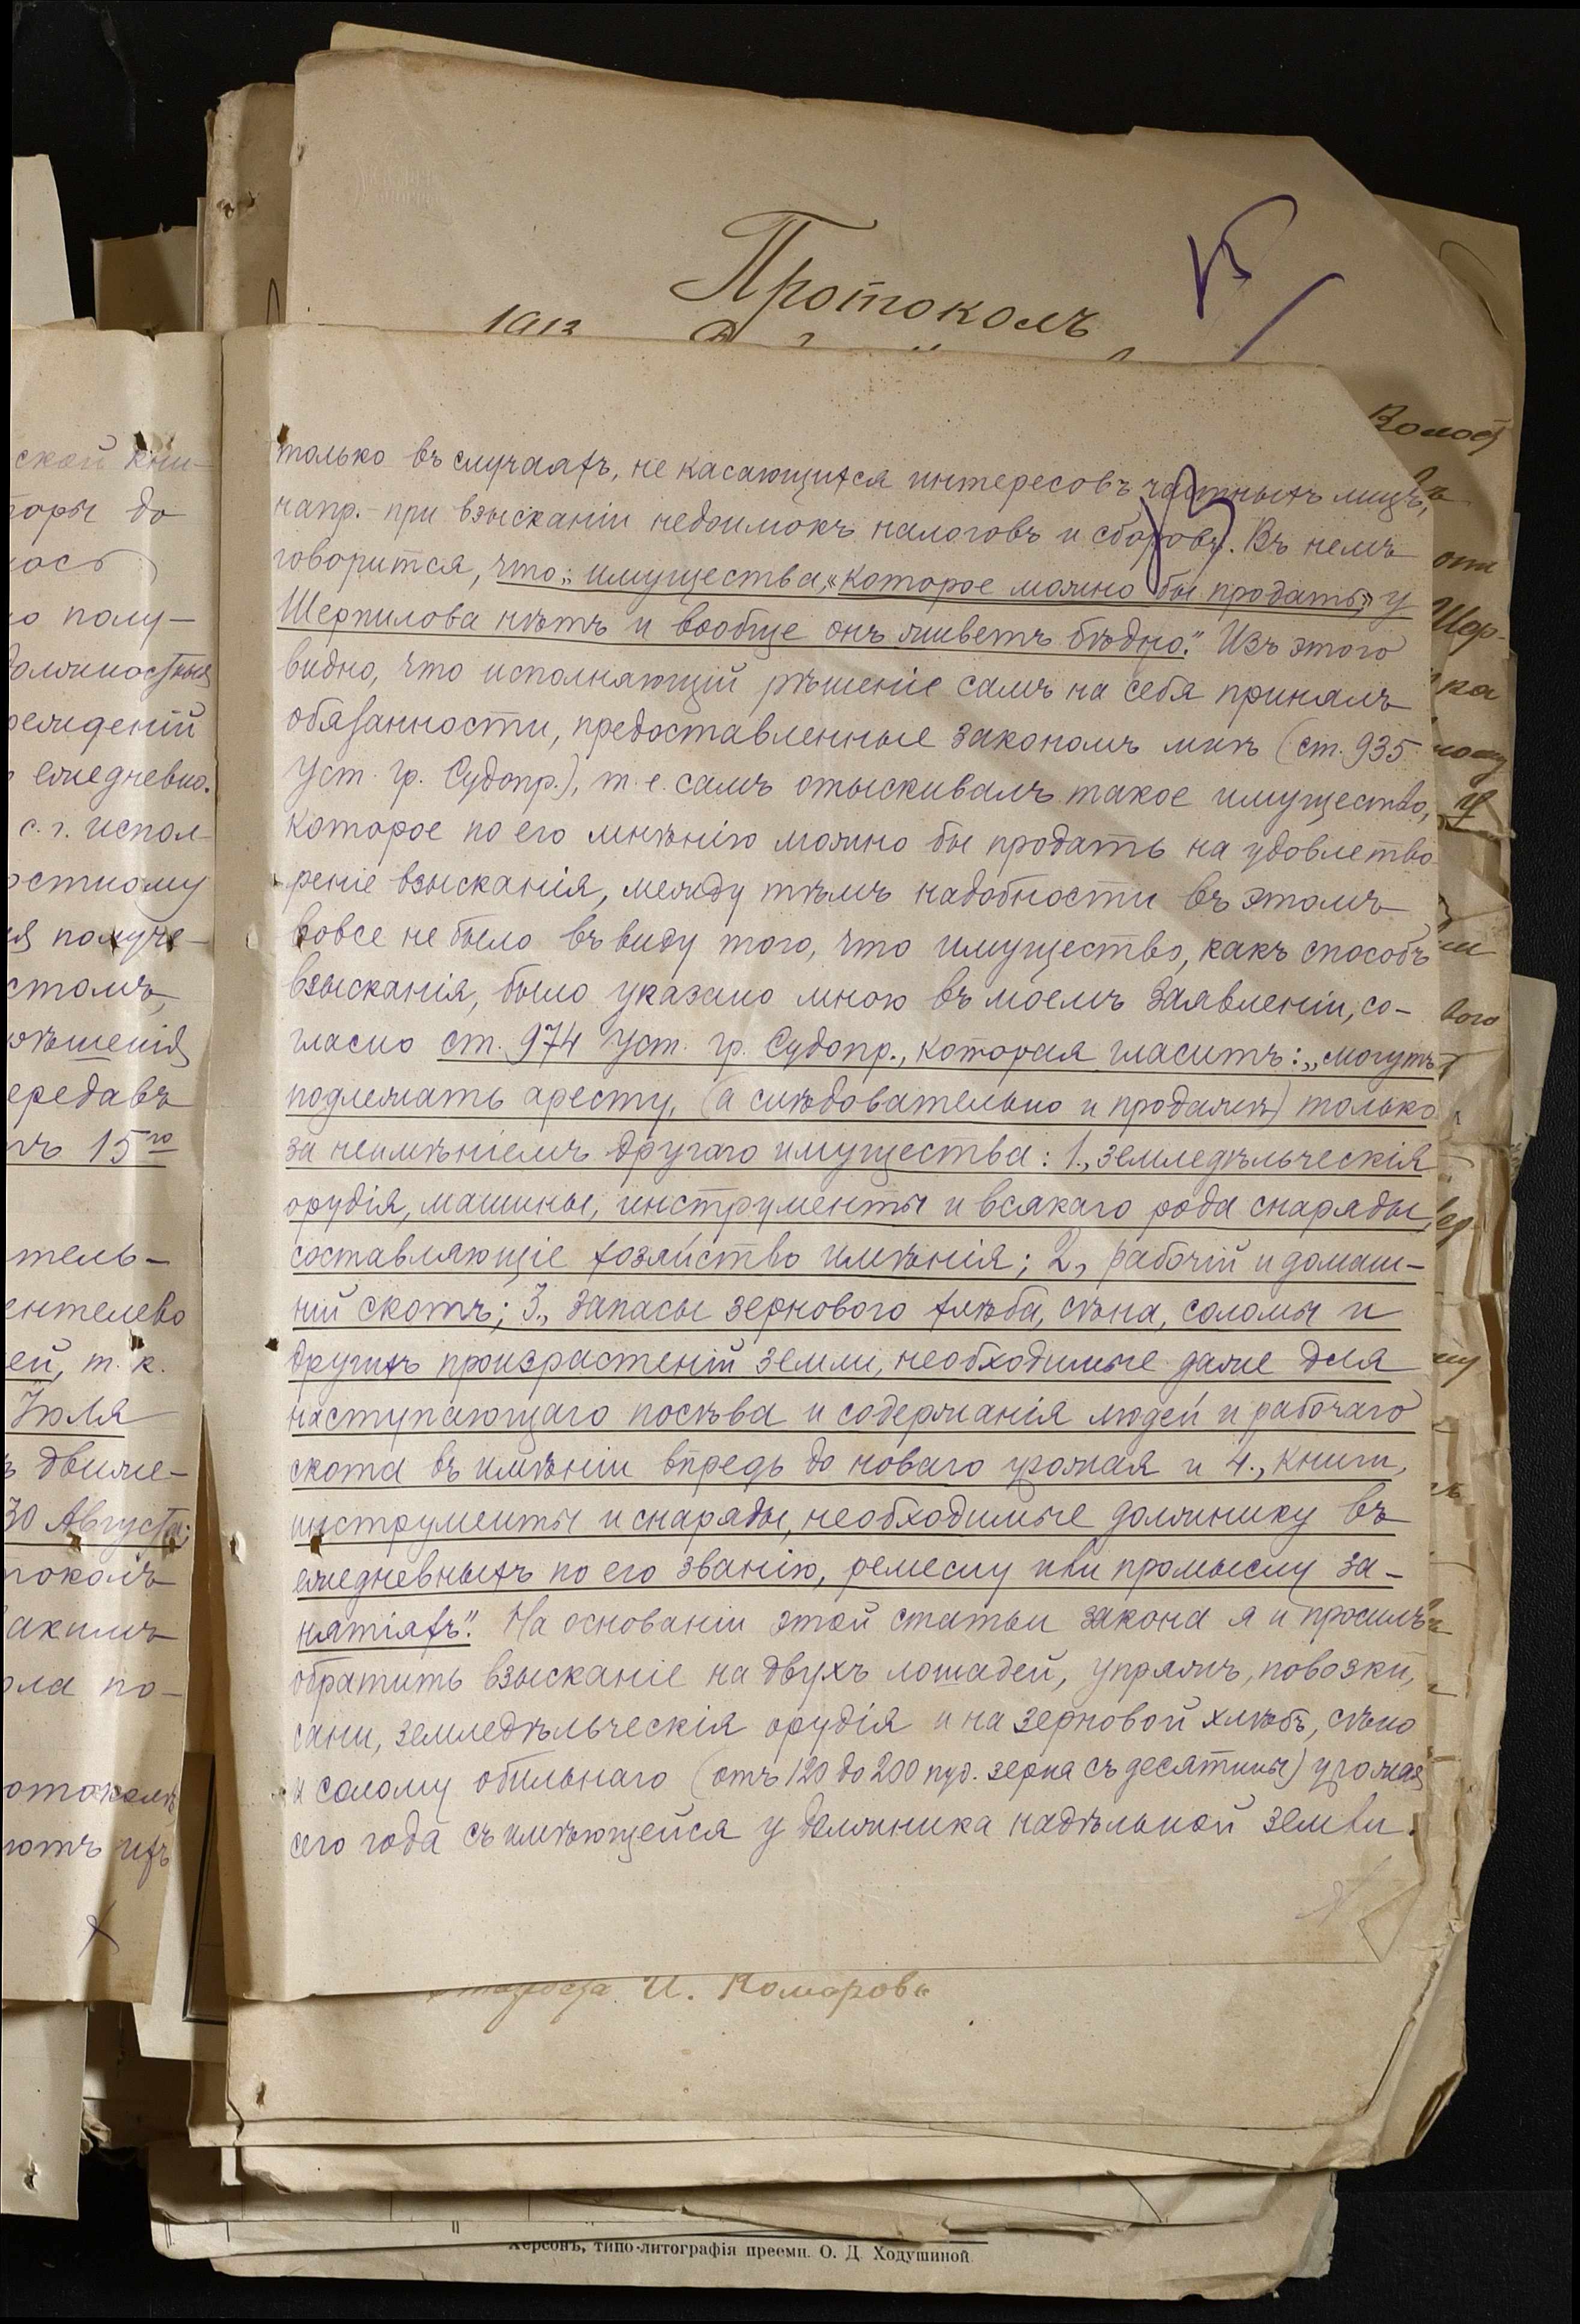 Протоколъ
1912
только въ случаяхъ, не касающихся интересовъ частныхъ лицъ,
напр.- при взысканіи недоимокъ налоговъ и сборовъ. Въ немъ
говорится, что: „имущества, „которое можно бы продать," у
Шерпилова нѣтъ и вообще онъ живетъ бѣдно". Изъ этого
видно, что исполняющій рѣшеніе самъ на себя принялъ
обязанности, предоставленные закономъ мнѣ (ст. 935
Уст. Гр. Судопр.), т. е. самъ отыскивалъ такое имущество,
которое по его мнѣнію можно бы продать на удовлетво
реніе взысканія, между тѣмъ надобности въ этомъ
вовсе не было въ виду того, что имущество, какъ способъ
взысканія, было указано мною въ моемъ заявленіи, со-
гласно ст. 974 Уст. гр. Судопр., которая гласитъ: „могутъ
подлежать аресту, (а слѣдовательно и продажѣ) только
за неимѣніемъ другаго имущества: 1., земледѣльческія
орудія, машины, инструменты и всякаго рода снаряды,
составляющіе хозяйство имѣнія; 2., рабочій и домаш-
ній скотъ; 3., запасы зернового хлѣба, сѣна, соломы и
другихъ произрастеній земли, необходимые даже для
наступающаго посѣва и содержанія людей и рабочаго
скота въ имѣніи впредь до новаго урожая и 4., книги,
инструменты и снаряды, необходимые должнику въ
ежедневныхъ по его званію, ремеслу или промыслу за-
нятіяхъ". На основаніи этой статьи закона я и просилъ
обратить взысканіе на двухъ лошадей, упряжь, повозки,
сани, земледѣльческія орудія и на зерновой хлѣбъ, сѣно
и солому обильнаго (отъ 120 до 200 пуд. зерна съ десятины) урожая
сего года съ имѣющейся у должника надѣльной земли.
староста И. Комаровъ
Херсонъ, типо-литографія преемн. О. Д. Ходушиной.
ской кни-
торы до
полу-
должностныя
ежедневно.
с. г. испол-
получе-
рѣшенія
передавъ
15го
тель-
ей, т. к.
Іюля
движе-
30 Августа;
по-
ихъ